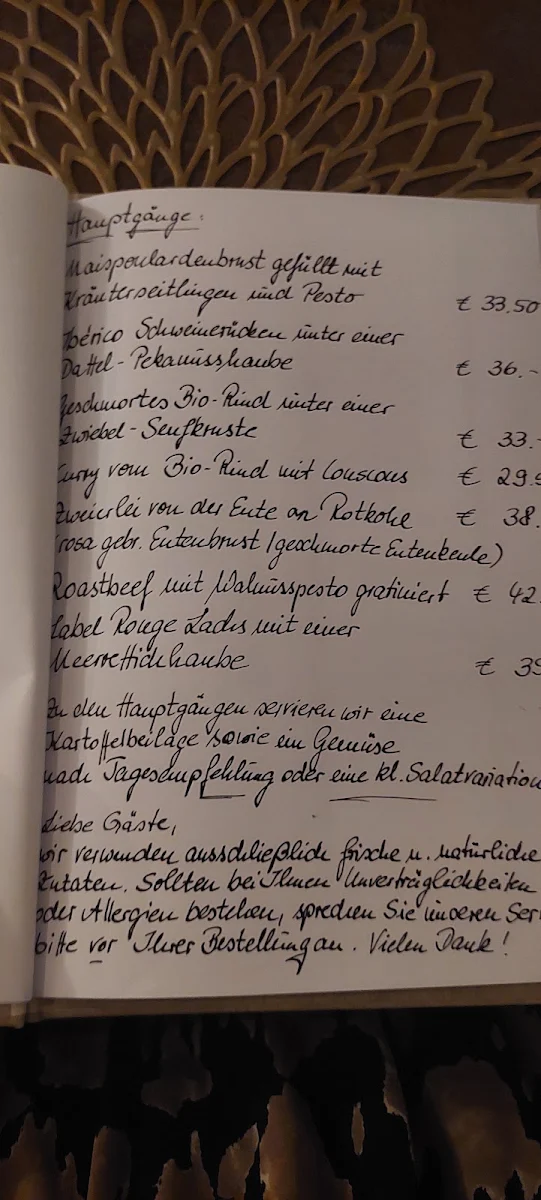 Hauptgänge:
Maispoulardenbrust gefüllt mit
Kräuterseitlingen und Pesto € 33.50
Ibérico Schweinerücken unter einer
Dattel-Pekanusshaube € 36.-
geschmortes Bio-Rind unter einer
Zwiebel-Senfkruste € 33.-
Curry vom Bio-Rind mit Couscous € 29.
Zweierlei von der Ente an Rotkohl € 38.
(rosa gebr. Entenbrust/geschmorte Entenkeule)
Roastbeef mit Walnusspesto gratiniert € 42
Label Rouge Lachs mit einer
Meerrettichhaube € 39
Zu den Hauptgängen servieren wir eine
Kartoffelbeilage sowie ein Gemüse
nach Tagesempfehlung oder eine kl. Salatvariation
Liebe Gäste,
wir verwenden ausschließlich frische u. natürliche
Zutaten. Sollten bei Ihnen Unverträglichkeiten
oder Allergien bestehen, sprechen Sie unseren Ser
bitte vor Ihrer Bestellung an. Vielen Dank!